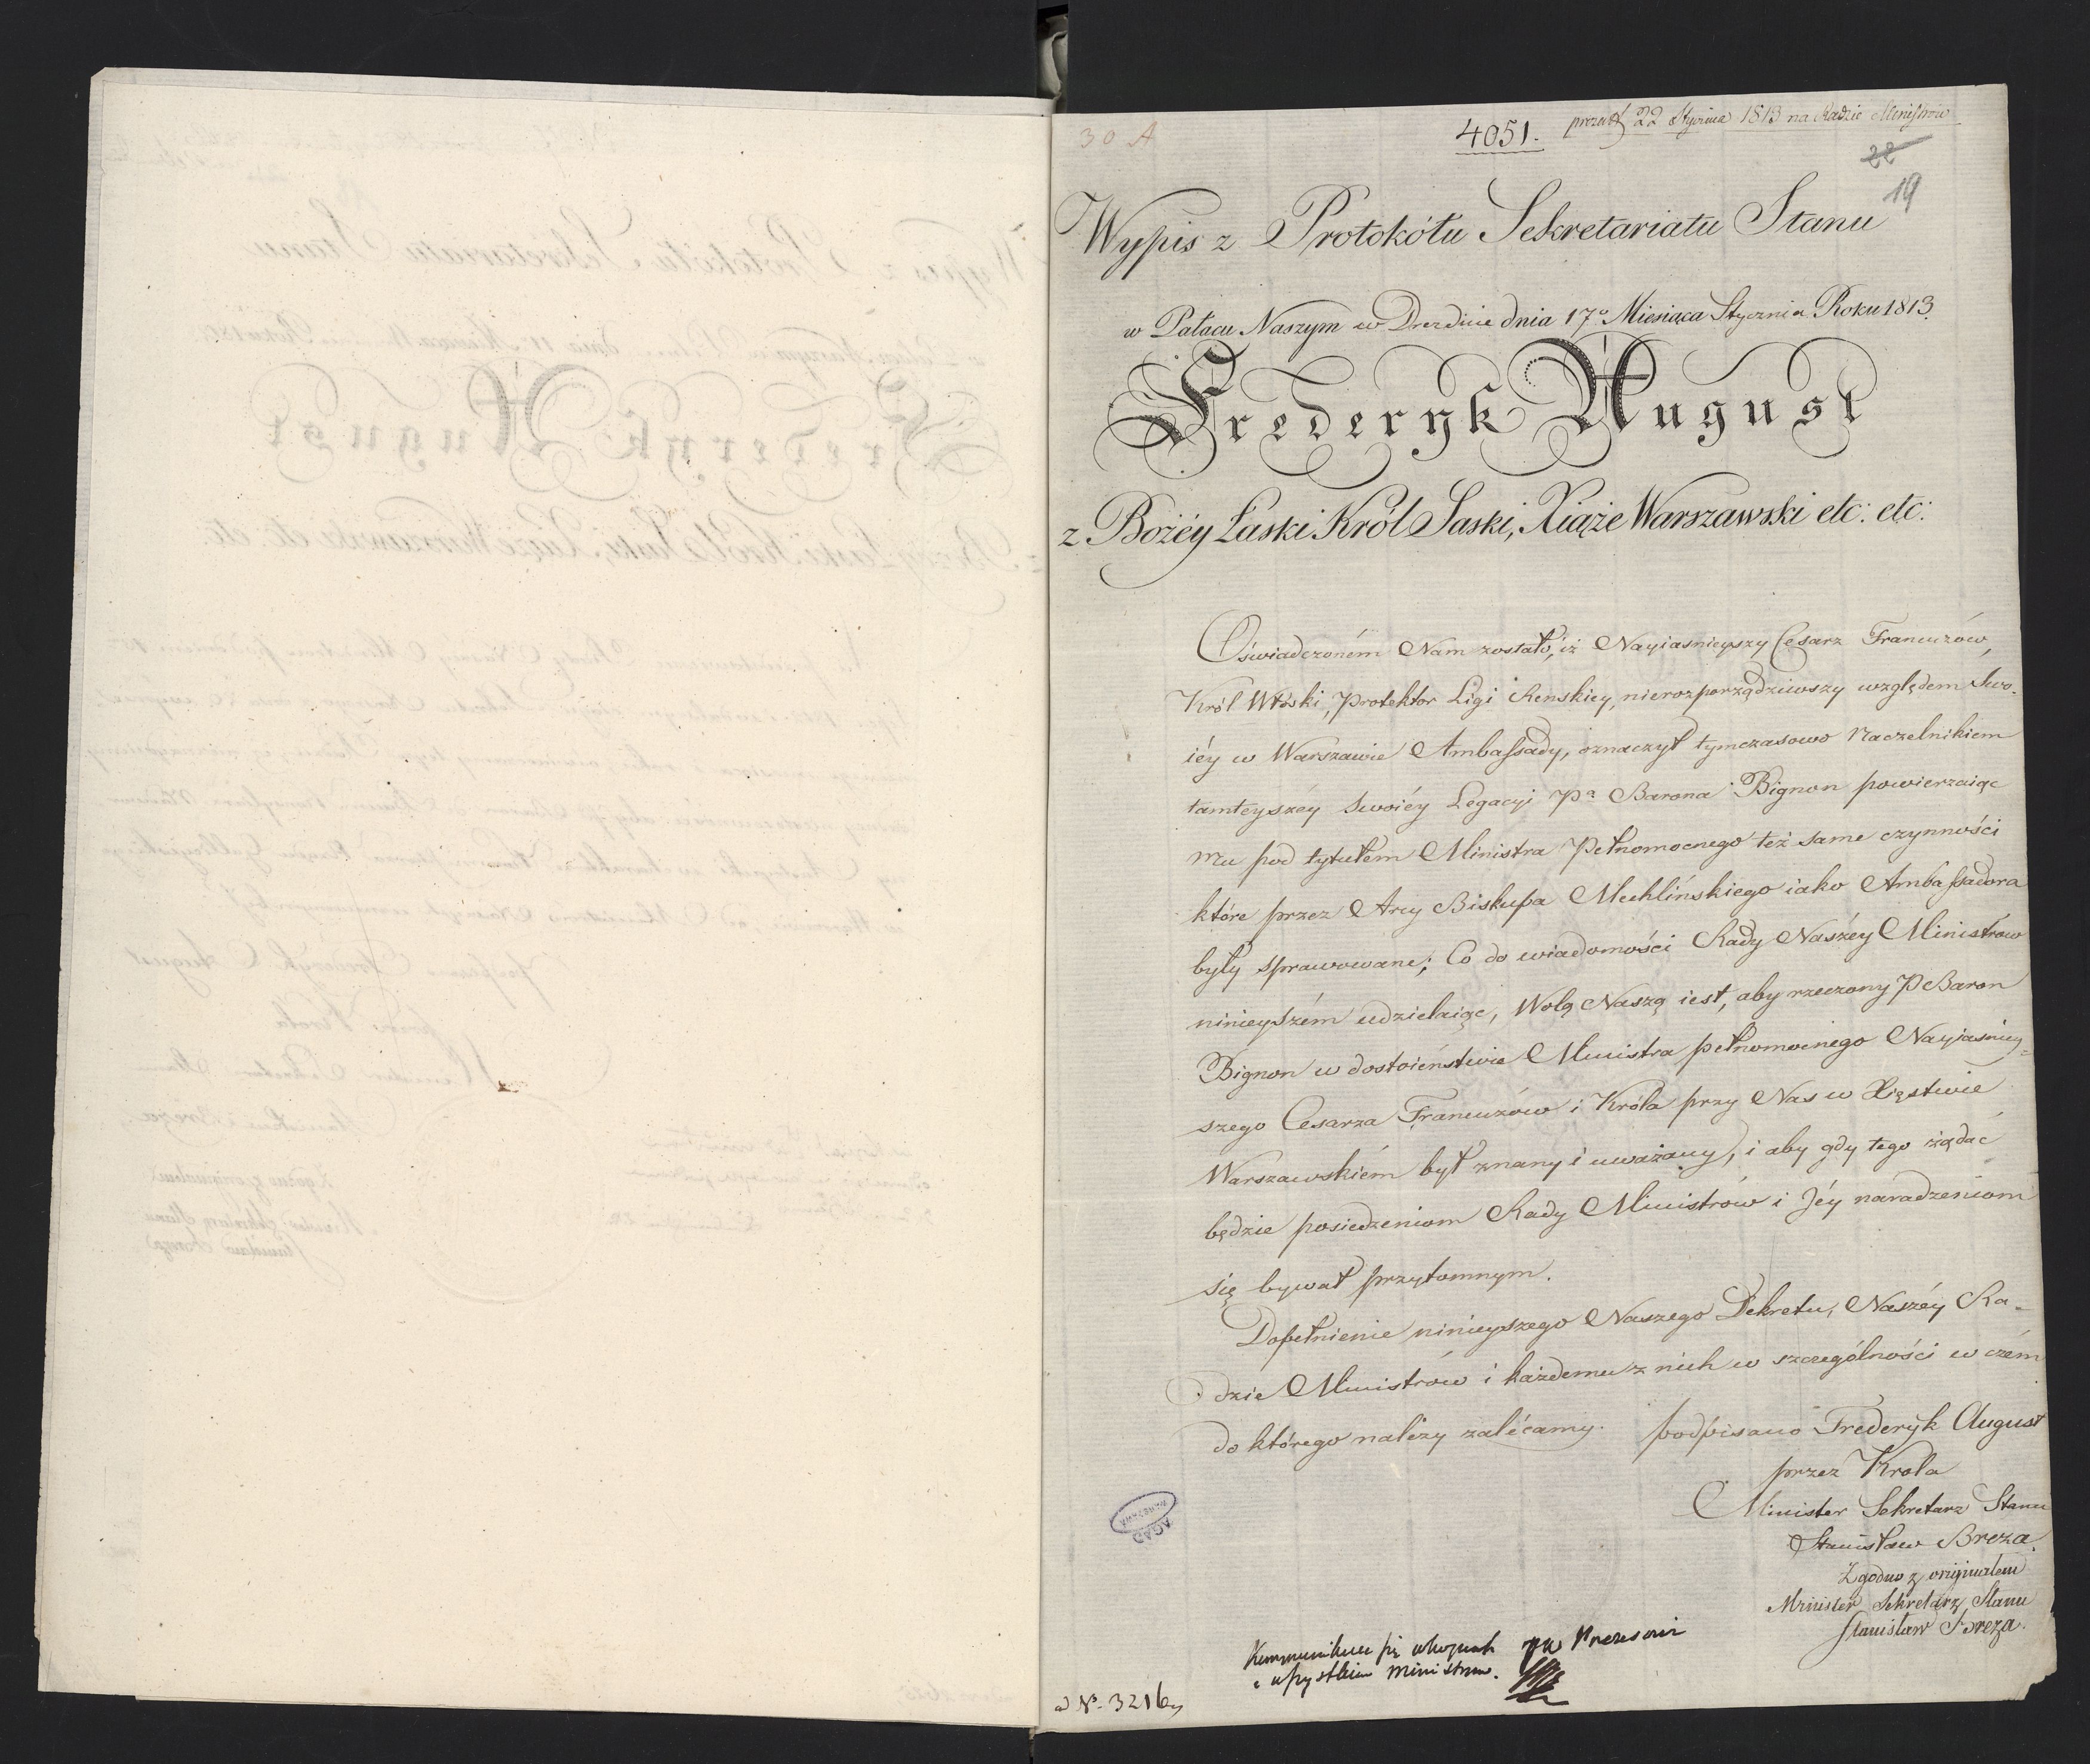 30 A
4051.
22 Stycznia 1813 na Radzie Ministrów
22
19
Wypis z Protokółu Sekretariatu Stanu
w Pałacu Naszym w Dreznie dnia 17º Miesiąca Stycznia Roku 1813.
Frederyk August
z Bożéy Łaski Król Saski, Xiąże Warszawski etc: etc:
Oświadczoném Nam zostało, iż Nayiasnieyszy Cesarz Francuzów,
Król Włoski, Protektor Ligi Renskiey, nierozporządziwszy względem Swo-
iéy w Warszawie Ambassady, oznaczył tymczasowo Naczelnikiem
tamteyszéy Swoiéy Legacyi Pª Barona Bignon powierzaiąc
mu pod tytułem Ministra Pełnomocnego też same czynności
które przez Arcy Biskupa Mechlińskiego iako Ambassadora
były sprawowane; Co do wiadomości Rady Naszéy Ministrow
ninieyszém udzielaiąc, Wolą Naszą iest, aby rzeczony P Baron
Bignon w dostoieństwie Ministra pełnomocnego Nayiasniey=
szego Cesarza Francuzów i Króla przy Nas w Xięstwie
Warszawskiém był znany i uważany, i aby gdy tego żądać
będzie posiedzeniom Rady Ministrów i Jéy naradzeniom
się bywał przytomnym.
Dopełnienie ninieyszego Naszego Dekretu, Naszéy Ra-
dzie Ministrów i każdemu z nich w szczególności w czém
do którego należy zalécamy. podpisano Frederyk August
przez Krola
Minister Sekretarz Stanu
Stanisław Breza.
Zgodno z originałem
Minister Sekretarz Stanu
Stanisław Breza.
AGAD
WARSZAWA
Kommunikuie się
Prezesowi
i wszystkim Ministrom.
ad Nº 3216